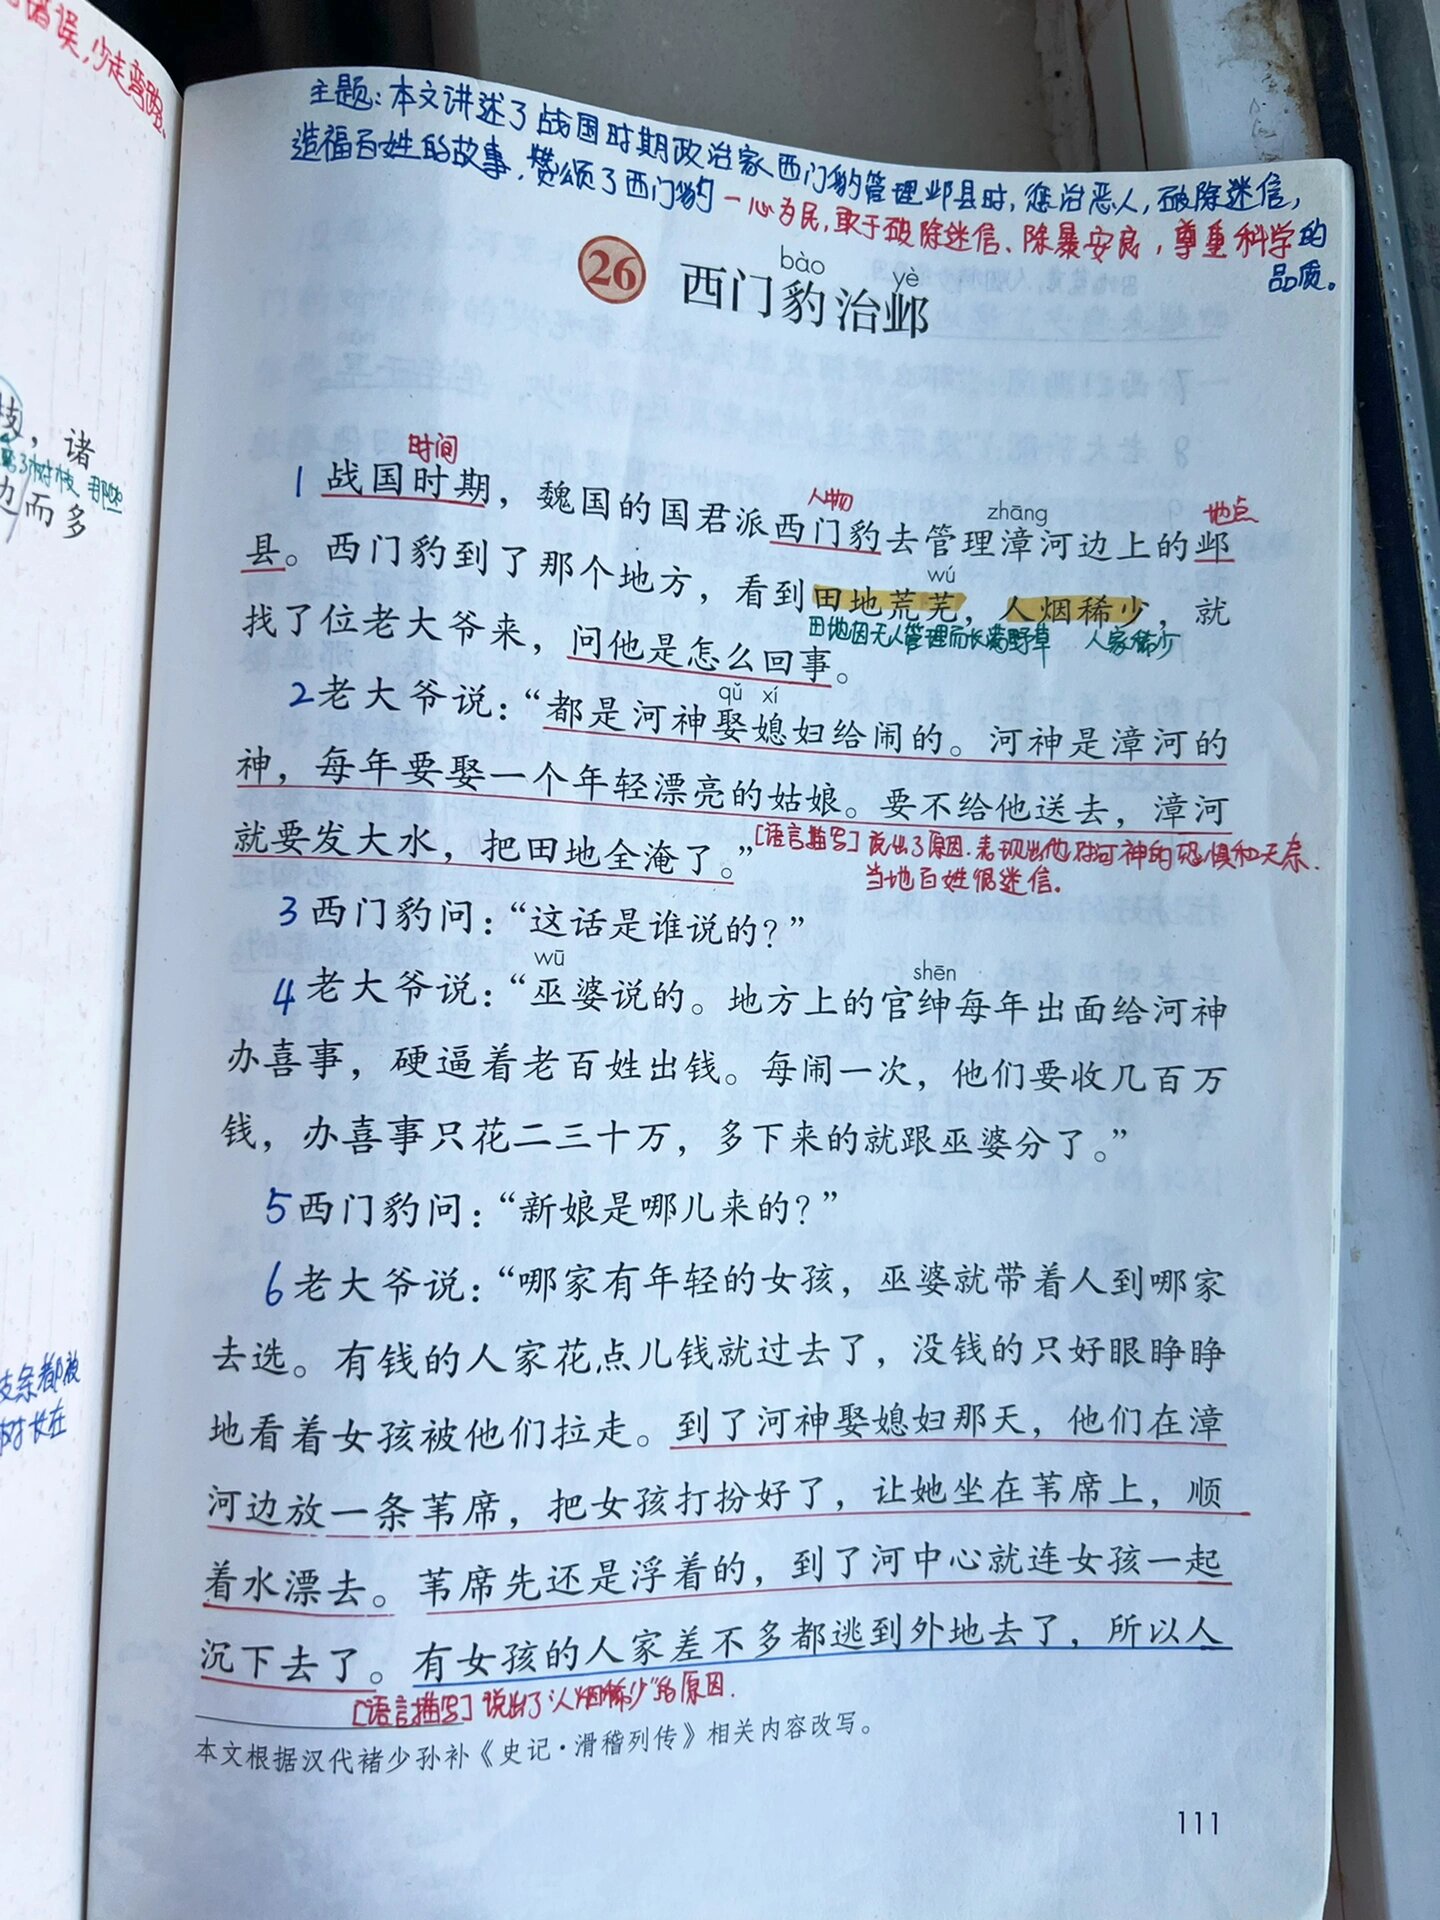 错误，少走弯路、
枝，诸
而多
枝条都被
树长在
主题：本文讲述了战国时期政治家西门豹管理邺县时，惩治恶人，破除迷信，
造福百姓的故事，赞颂了西门豹一心为民，敢于破除迷信、除暴安良，尊重科学的
品质。
bào yè
26 西门豹治邺
时间
人物
zhāng
地点
1 战国时期，魏国的国君派西门豹去管理漳河边上的邺
wú
县。西门豹到了那个地方，看到田地荒芜，人烟稀少，就
田地因无人管理而长满野草 人家稀少
找了位老大爷来，问他是怎么回事。
qǔ xí
2 老大爷说：“都是河神娶媳妇给闹的。河神是漳河的
神，每年要娶一个年轻漂亮的姑娘。要不给他送去，漳河
就要发大水，把田地全淹了。”
[语言描写] 说出了原因.表现出他对河神的恐惧和无奈.
当地百姓很迷信.
3 西门豹问：“这话是谁说的？”
wū shēn
4 老大爷说：“巫婆说的。地方上的官绅每年出面给河神
办喜事，硬逼着老百姓出钱。每闹一次，他们要收几百万
钱，办喜事只花二三十万，多下来的就跟巫婆分了。”
5 西门豹问：“新娘是哪儿来的？”
6 老大爷说：“哪家有年轻的女孩，巫婆就带着人到哪家
去选。有钱的人家花点儿钱就过去了，没钱的只好眼睁睁
地看着女孩被他们拉走。到了河神娶媳妇那天，他们在漳
河边放一条苇席，把女孩打扮好了，让她坐在苇席上，顺
着水漂去。苇席先还是浮着的，到了河中心就连女孩一起
沉下去了。有女孩的人家差不多都逃到外地去了，所以人
[语言描写] 说出了“人烟稀少”的原因.
本文根据汉代褚少孙补《史记·滑稽列传》相关内容改写。
111